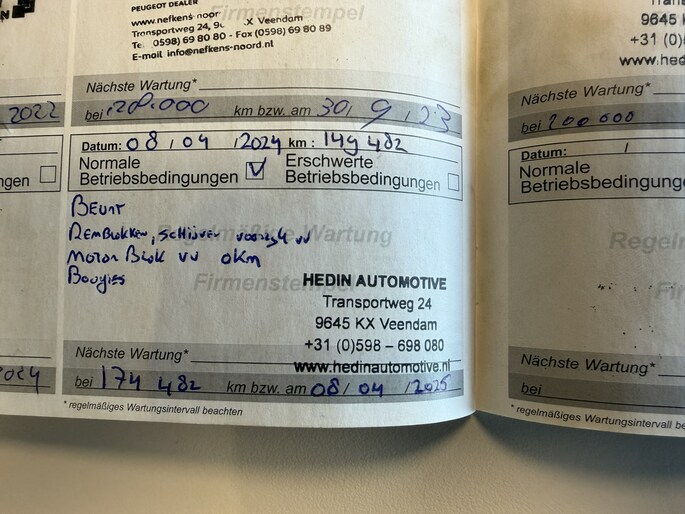 PEUGEOT DEALER
Firmenstempel
Transportweg 24, X Veendam
(0598) 69 80 80 - Fax (0598) 69 80 89
E-mail info@nefkens-noord.nl
Nächste Wartung*
2022
bei km bzw. am 30, 9, 23
Datum: 08 / 04 / 2024 km : 149 482
Normale Betriebsbedingungen
Erschwerte Betriebsbedingungen
ngen
BEURT
REMBLOKKEN, SCHIJVEN VV
Regelmäßige Wartung
MOTOR BLOK VV 0KM
BOUGIES
Firmenstempel
HEDIN AUTOMOTIVE
Transportweg 24
9645 KX Veendam
+31 (0)598 – 698 080
www.hedinautomotive.nl
Nächste Wartung*
bei 174 482 km bzw. am 08 / 04 / 2025
* regelmäßiges Wartungsintervall beachten
2024
9645
+31 (0)
www.hed
Nächste Wartung*
bei 200 000
Datum: /
Normale
Betriebsbedingung
Regelm
Nächste Wartung*
bei
* regelmäßiges Wartungsintervall be